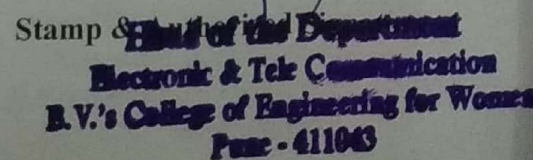 Stamp & Authorized
Head of the Department
Electronic & Tele Communication
B.V.'s College of Engineering for Women
Pune - 411043